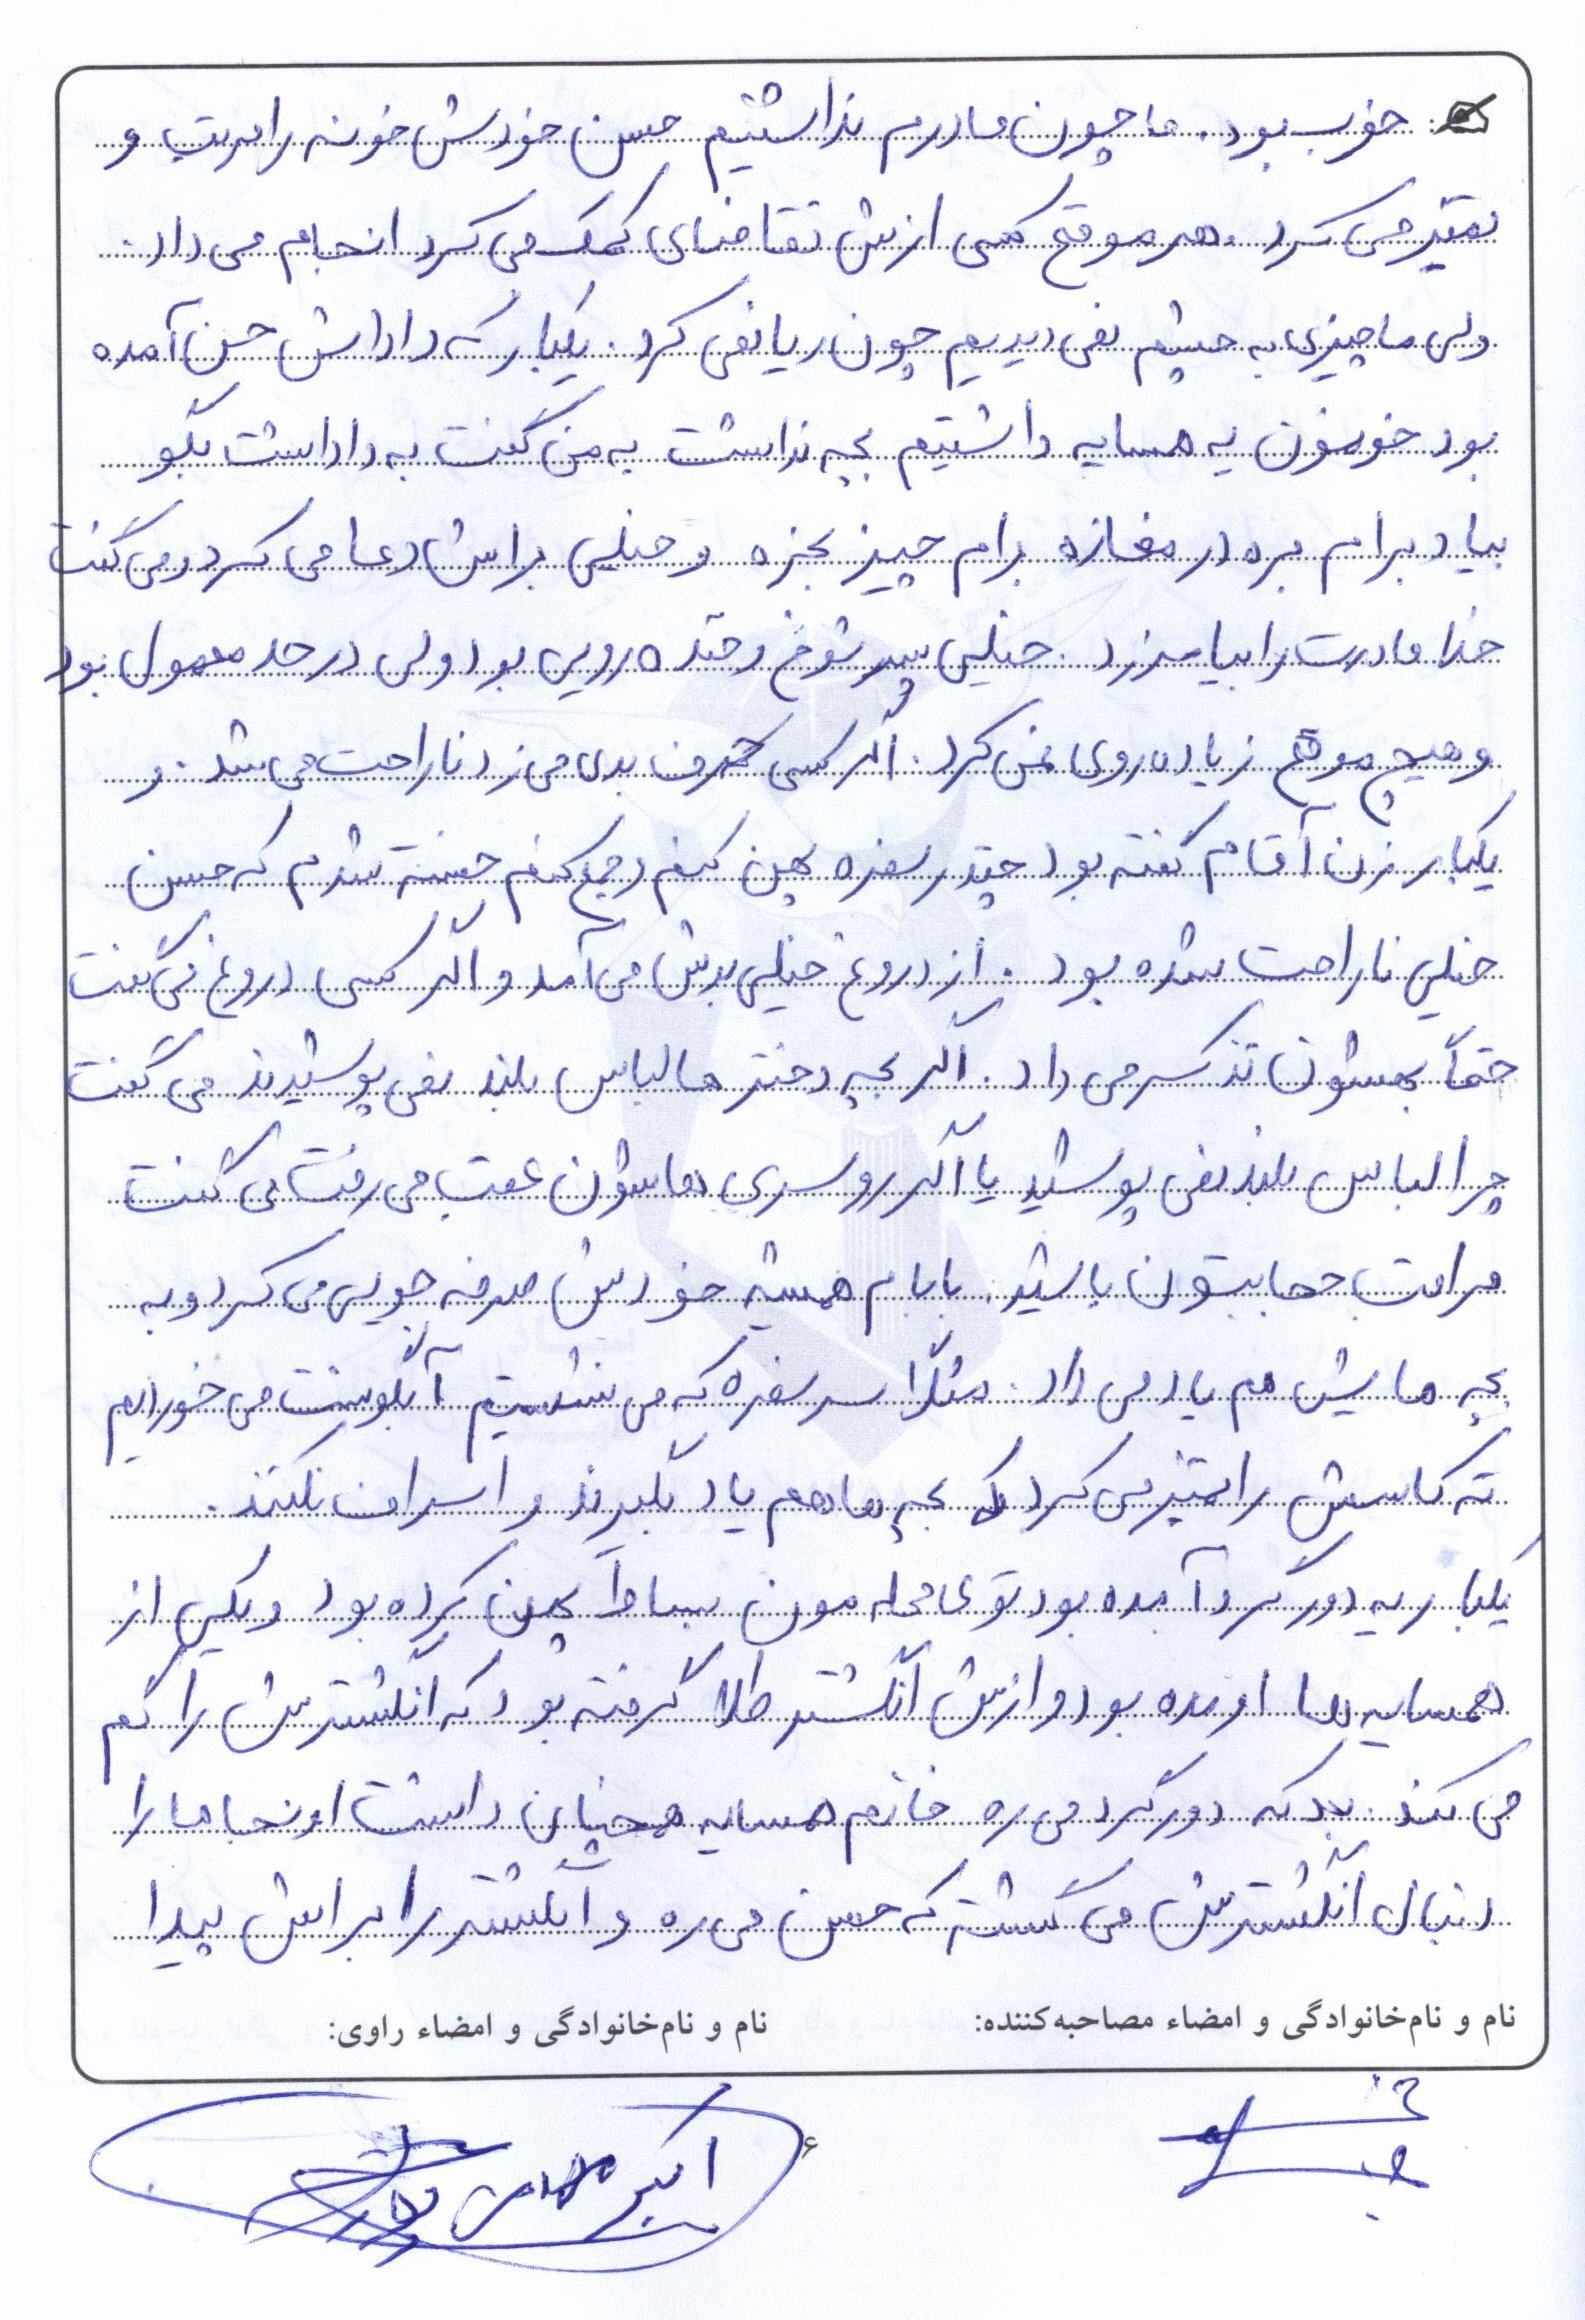 خوب بود. ما چون مادرم نداشتیم حسن خودش خونه را مرتب و
تمیز می کرد. هر موقع کسی ازش تقاضای کمک می کرد انجام می داد.
ولی ما چیزی به چشم نمی دیدیم چون ریا نمی کرد. یکبار که داداش حسن آمده
بود خونمون یه همسایه داشتیم بچه نداشت به من گفت به داداشت بگو
بیاد برام بره در مغازه برام چیز بخره و خیلی براش دعا می کرد و می گفت
خدا مادرت را بیامرزد. خیلی پسر شوخ و خنده رویی بود ولی در حد معمول بود
و هیچ موقع زیاده روی نمی کرد. اگر کسی حرف بدی می زد ناراحت می شد. و
یکبار زن آقام گفته بود چقدر سفره پهن کنم و جمع کنم خسته شدم که حسن
خیلی ناراحت شده بود. از دروغ خیلی بدش می آمد و اگر کسی دروغ می گفت
حتماً بهشون تذکر می داد. اگر بچه دخترها لباس بلند نمی پوشیدند می گفت
چرا لباس بلند نمی پوشید یا اگر روسری هاشون عقب می رفت می گفت
مراقب حجابتون باشید. بابام همیشه خودش صرفه جویی می کرد و به
بچه هایش هم یاد می داد. مثلاً سر سفره که می نشستیم آبگوشت می خوردیم
ته کاسش را تمیز می کرد که بچه ها هم یاد بگیرند و اسراف نکنند.
یکبار یه دورگرد آمده بود توی محله مون بساط پهن کرده بود و یکی از
همسایه ها اومده بود و ازش انگشتر طلا گرفته بود که انگشترش را گم
می کند. بعد که دورگرد می ره خانم همسایه همچنان داشت اونجاها را
دنبال انگشترش می گشته که حسن می ره و انگشتر را براش پیدا
نام و نام‌خانوادگی و امضاء مصاحبه‌کننده:
نام و نام‌خانوادگی و امضاء راوی:
۶
اکبر